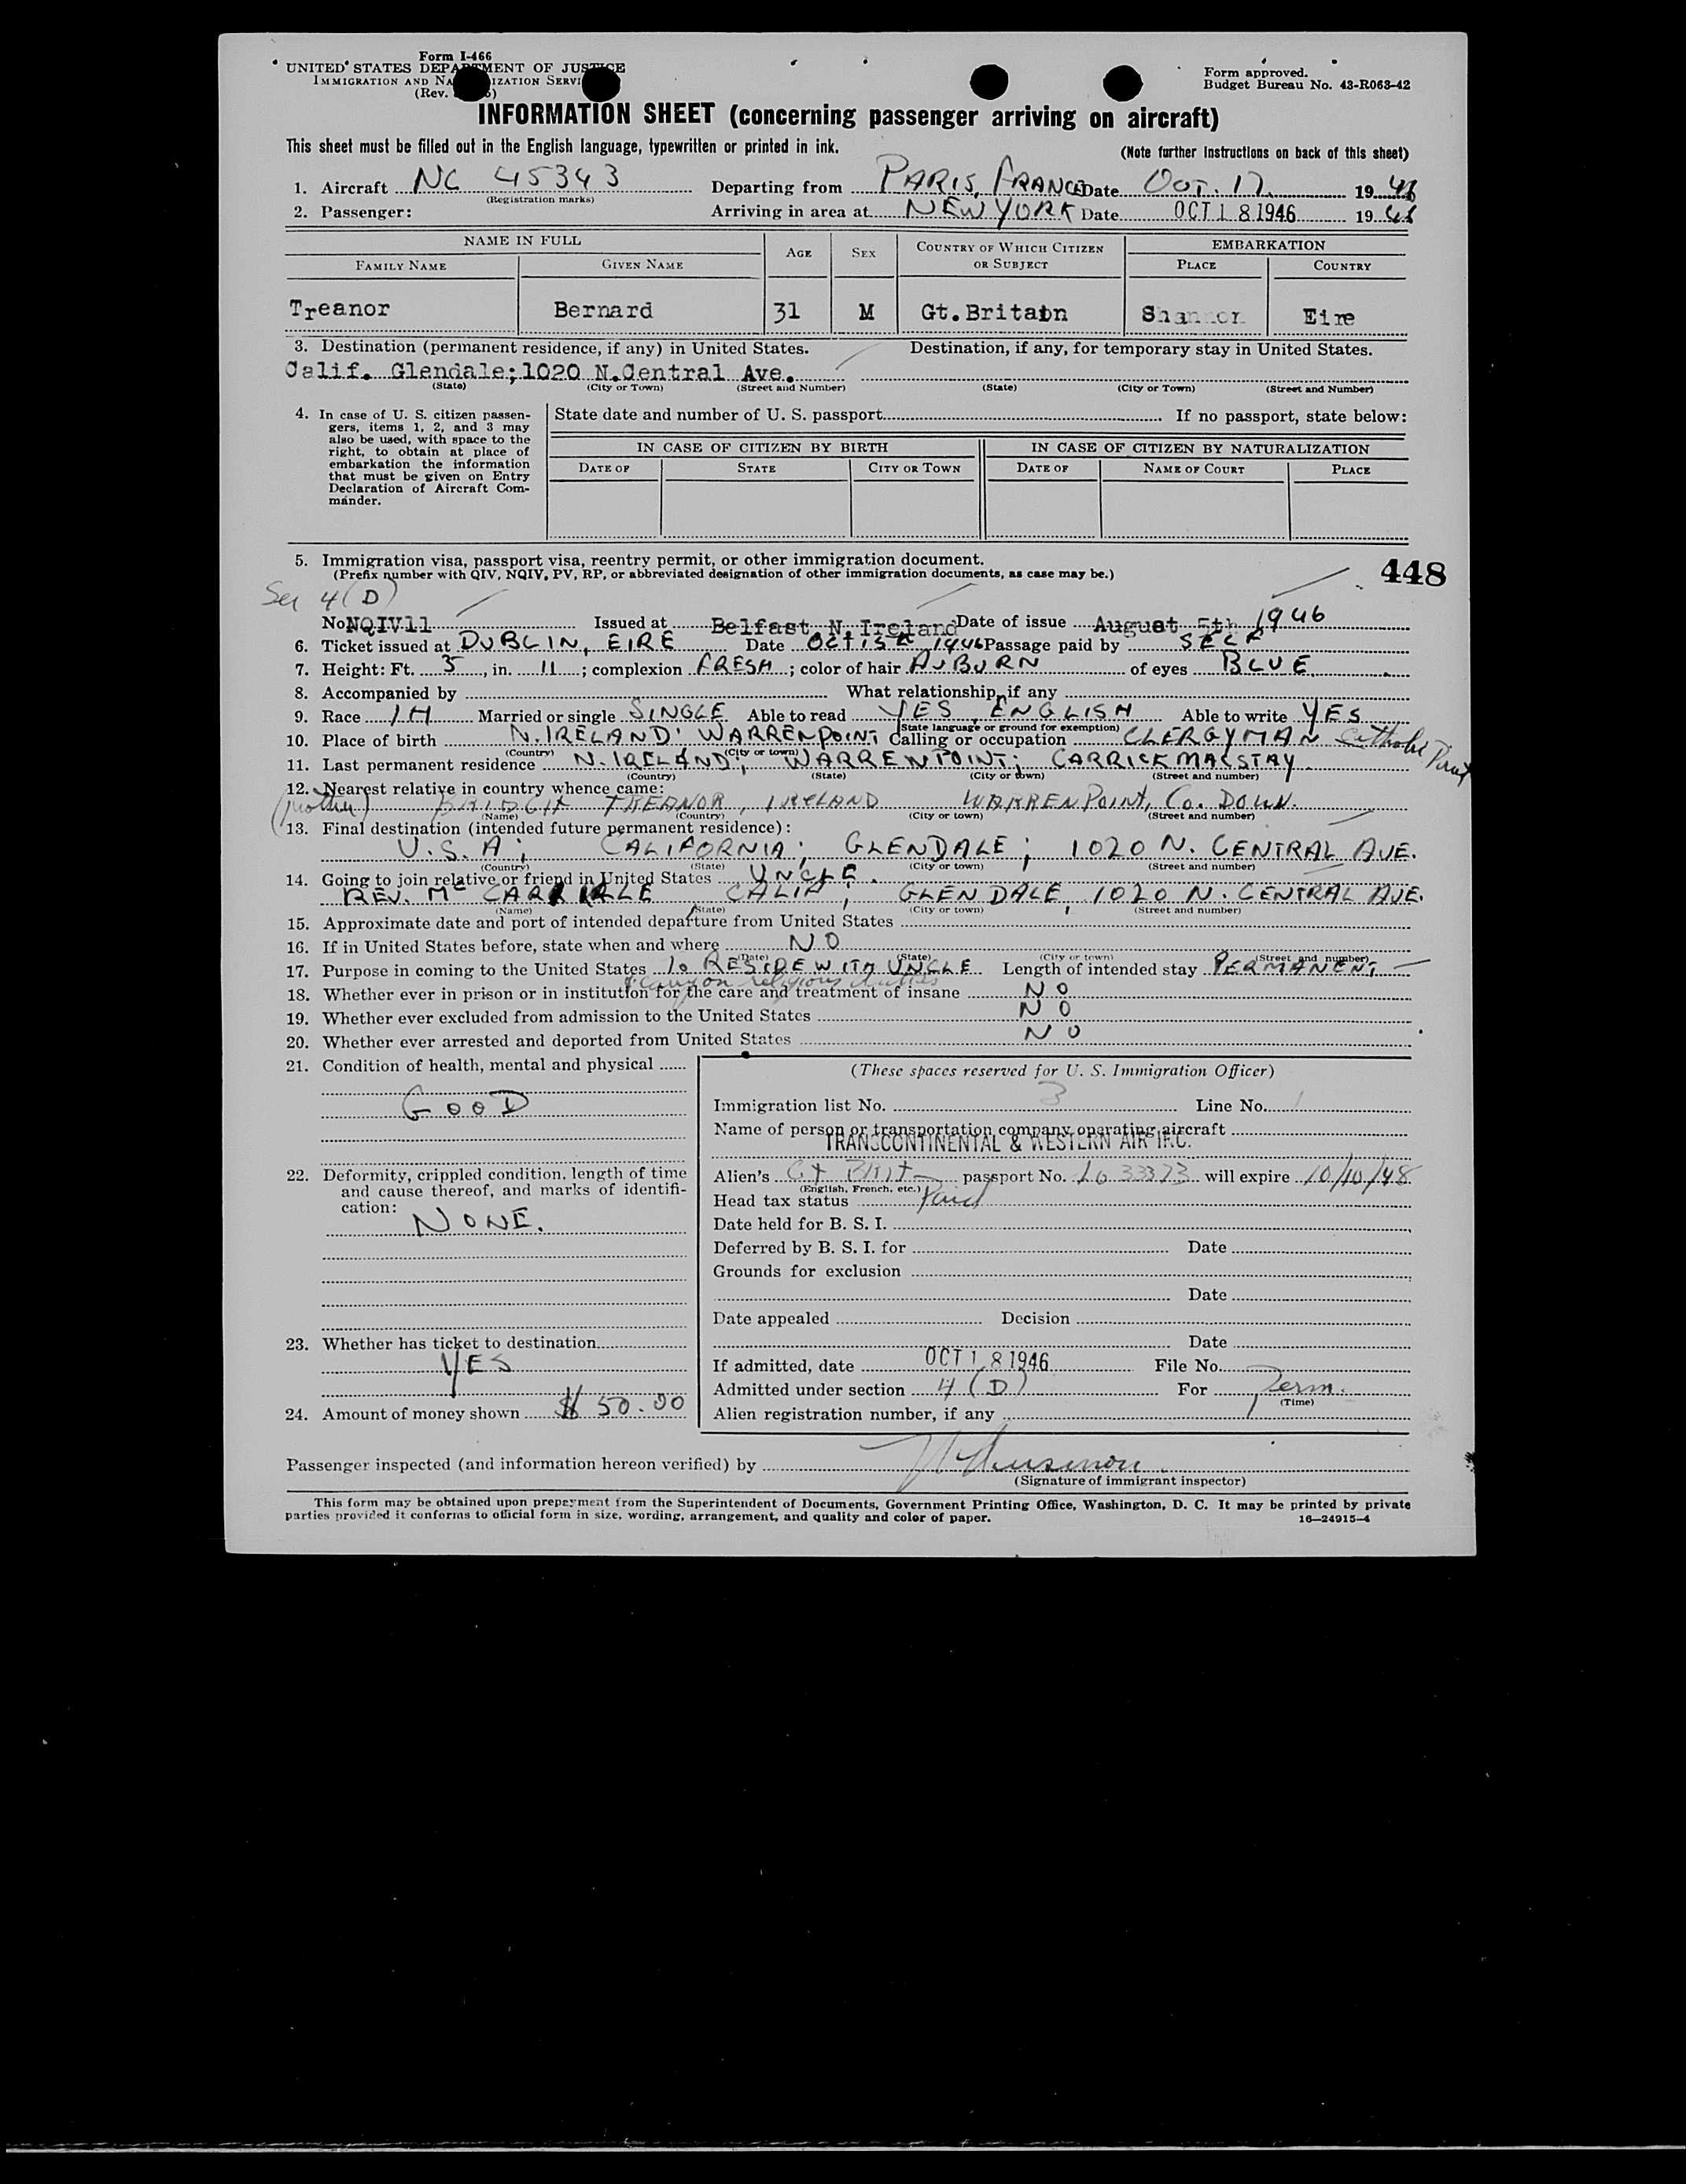 Form I-466
UNITED STATES DEPARTMENT OF JUSTICE
IMMIGRATION AND NA IZATION SERVI
(Rev.
Form approved.
Budget Bureau No. 43-R063-42
INFORMATION SHEET (concerning passenger arriving on aircraft)
This sheet must be filled out in the English language, typewritten or printed in ink.
(Note further instructions on back of this sheet)
1. Aircraft NC 45343 Departing from PARIS, FRANCE Date OCT. 17 19 46
(Registration marks)
2. Passenger: Arriving in area at NEW YORK Date OCT 18 1946 19 46
NAME IN FULL AGE SEX COUNTRY OF WHICH CITIZEN OR SUBJECT EMBARKATION
FAMILY NAME GIVEN NAME PLACE COUNTRY
Treanor Bernard 31 M Gt.Britain Shannon Eire
3. Destination (permanent residence, if any) in United States. Destination, if any, for temporary stay in United States.
Calif. Glendale;1020 N.Central Ave.
(State) (City or Town) (Street and Number) (State) (City or Town) (Street and Number)
4. In case of U. S. citizen passengers, items 1, 2, and 3 may also be used, with space to the right, to obtain at place of embarkation the information that must be given on Entry Declaration of Aircraft Commander.
State date and number of U. S. passport If no passport, state below:
IN CASE OF CITIZEN BY BIRTH IN CASE OF CITIZEN BY NATURALIZATION
DATE OF STATE CITY OR TOWN DATE OF NAME OF COURT PLACE
5. Immigration visa, passport visa, reentry permit, or other immigration document.
(Prefix number with QIV, NQIV, PV, RP, or abbreviated designation of other immigration documents, as case may be.)
448
4 (D)
No NQIV11 Issued at Belfast N. Ireland Date of issue August 5th 1946
6. Ticket issued at DUBLIN, EIRE Date OCT 15th 1946 Passage paid by SELF
7. Height: Ft. 5, in. 11; complexion FRESH; color of hair AUBURN of eyes BLUE
8. Accompanied by What relationship, if any
9. Race IH Married or single SINGLE Able to read YES, ENGLISH Able to write YES
(State language or ground for exemption)
10. Place of birth N. IRELAND; WARRENPOINT Calling or occupation CLERGYMAN Catholic Priest
(Country) (City or town)
11. Last permanent residence N. IRELAND; WARRENPOINT; CARRICKMACSTAY
(Country) (State) (City or town) (Street and number)
12. Nearest relative in country whence came:
(mother) BRIDGET TREANOR, IRELAND WARRENPOINT, CO. DOWN.
(Name) (Country) (City or town) (Street and number)
13. Final destination (intended future permanent residence):
U.S.A; CALIFORNIA; GLENDALE; 1020 N. CENTRAL AVE.
(Country) (State) (City or town) (Street and number)
14. Going to join relative or friend in United States UNCLE.
REV. Mc CALIF, GLENDALE, 1020 N. CENTRAL AVE.
(Name) (State) (City or town) (Street and number)
15. Approximate date and port of intended departure from United States
16. If in United States before, state when and where NO
(Date) (State) (City or town) (Street and number)
17. Purpose in coming to the United States To RESIDE WITH UNCLE Length of intended stay PERMANENT
& carry on religious duties
18. Whether ever in prison or in institution for the care and treatment of insane NO
19. Whether ever excluded from admission to the United States NO
20. Whether ever arrested and deported from United States NO
21. Condition of health, mental and physical
GOOD
22. Deformity, crippled condition, length of time and cause thereof, and marks of identification:
NONE.
23. Whether has ticket to destination
YES
24. Amount of money shown $ 50.00
(These spaces reserved for U. S. Immigration Officer)
Immigration list No. 3 Line No. 1
Name of person or transportation company operating aircraft
TRANSCONTINENTAL & WESTERN AIR INC.
Alien's Gt Brit passport No. L0 33373 will expire 10/10/48
(English, French, etc.)
Head tax status Paid
Date held for B. S. I.
Deferred by B. S. I. for Date
Grounds for exclusion
Date
Date appealed Decision
Date
If admitted, date OCT 18 1946 File No.
Admitted under section 4 (D) For Perm.
(Time)
Alien registration number, if any
Passenger inspected (and information hereon verified) by
(Signature of immigrant inspector)
This form may be obtained upon prepayment from the Superintendent of Documents, Government Printing Office, Washington, D. C. It may be printed by private
parties provided it conforms to official form in size, wording, arrangement, and quality and color of paper. 16—24915-4